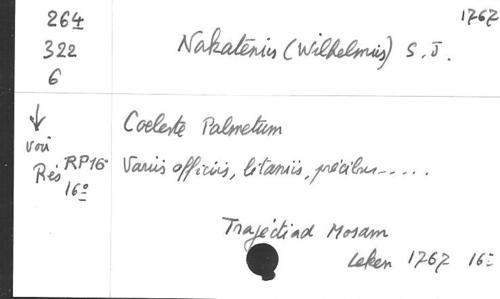 264 1767
322 Nakaténius (Wilhelmus) S.J.
6
Coeleste Palmetum
voir
Rés RP16° Variis officiis, litaniis, précibus.....
16°
Trajecti ad Mosam
Leken 1767 16°